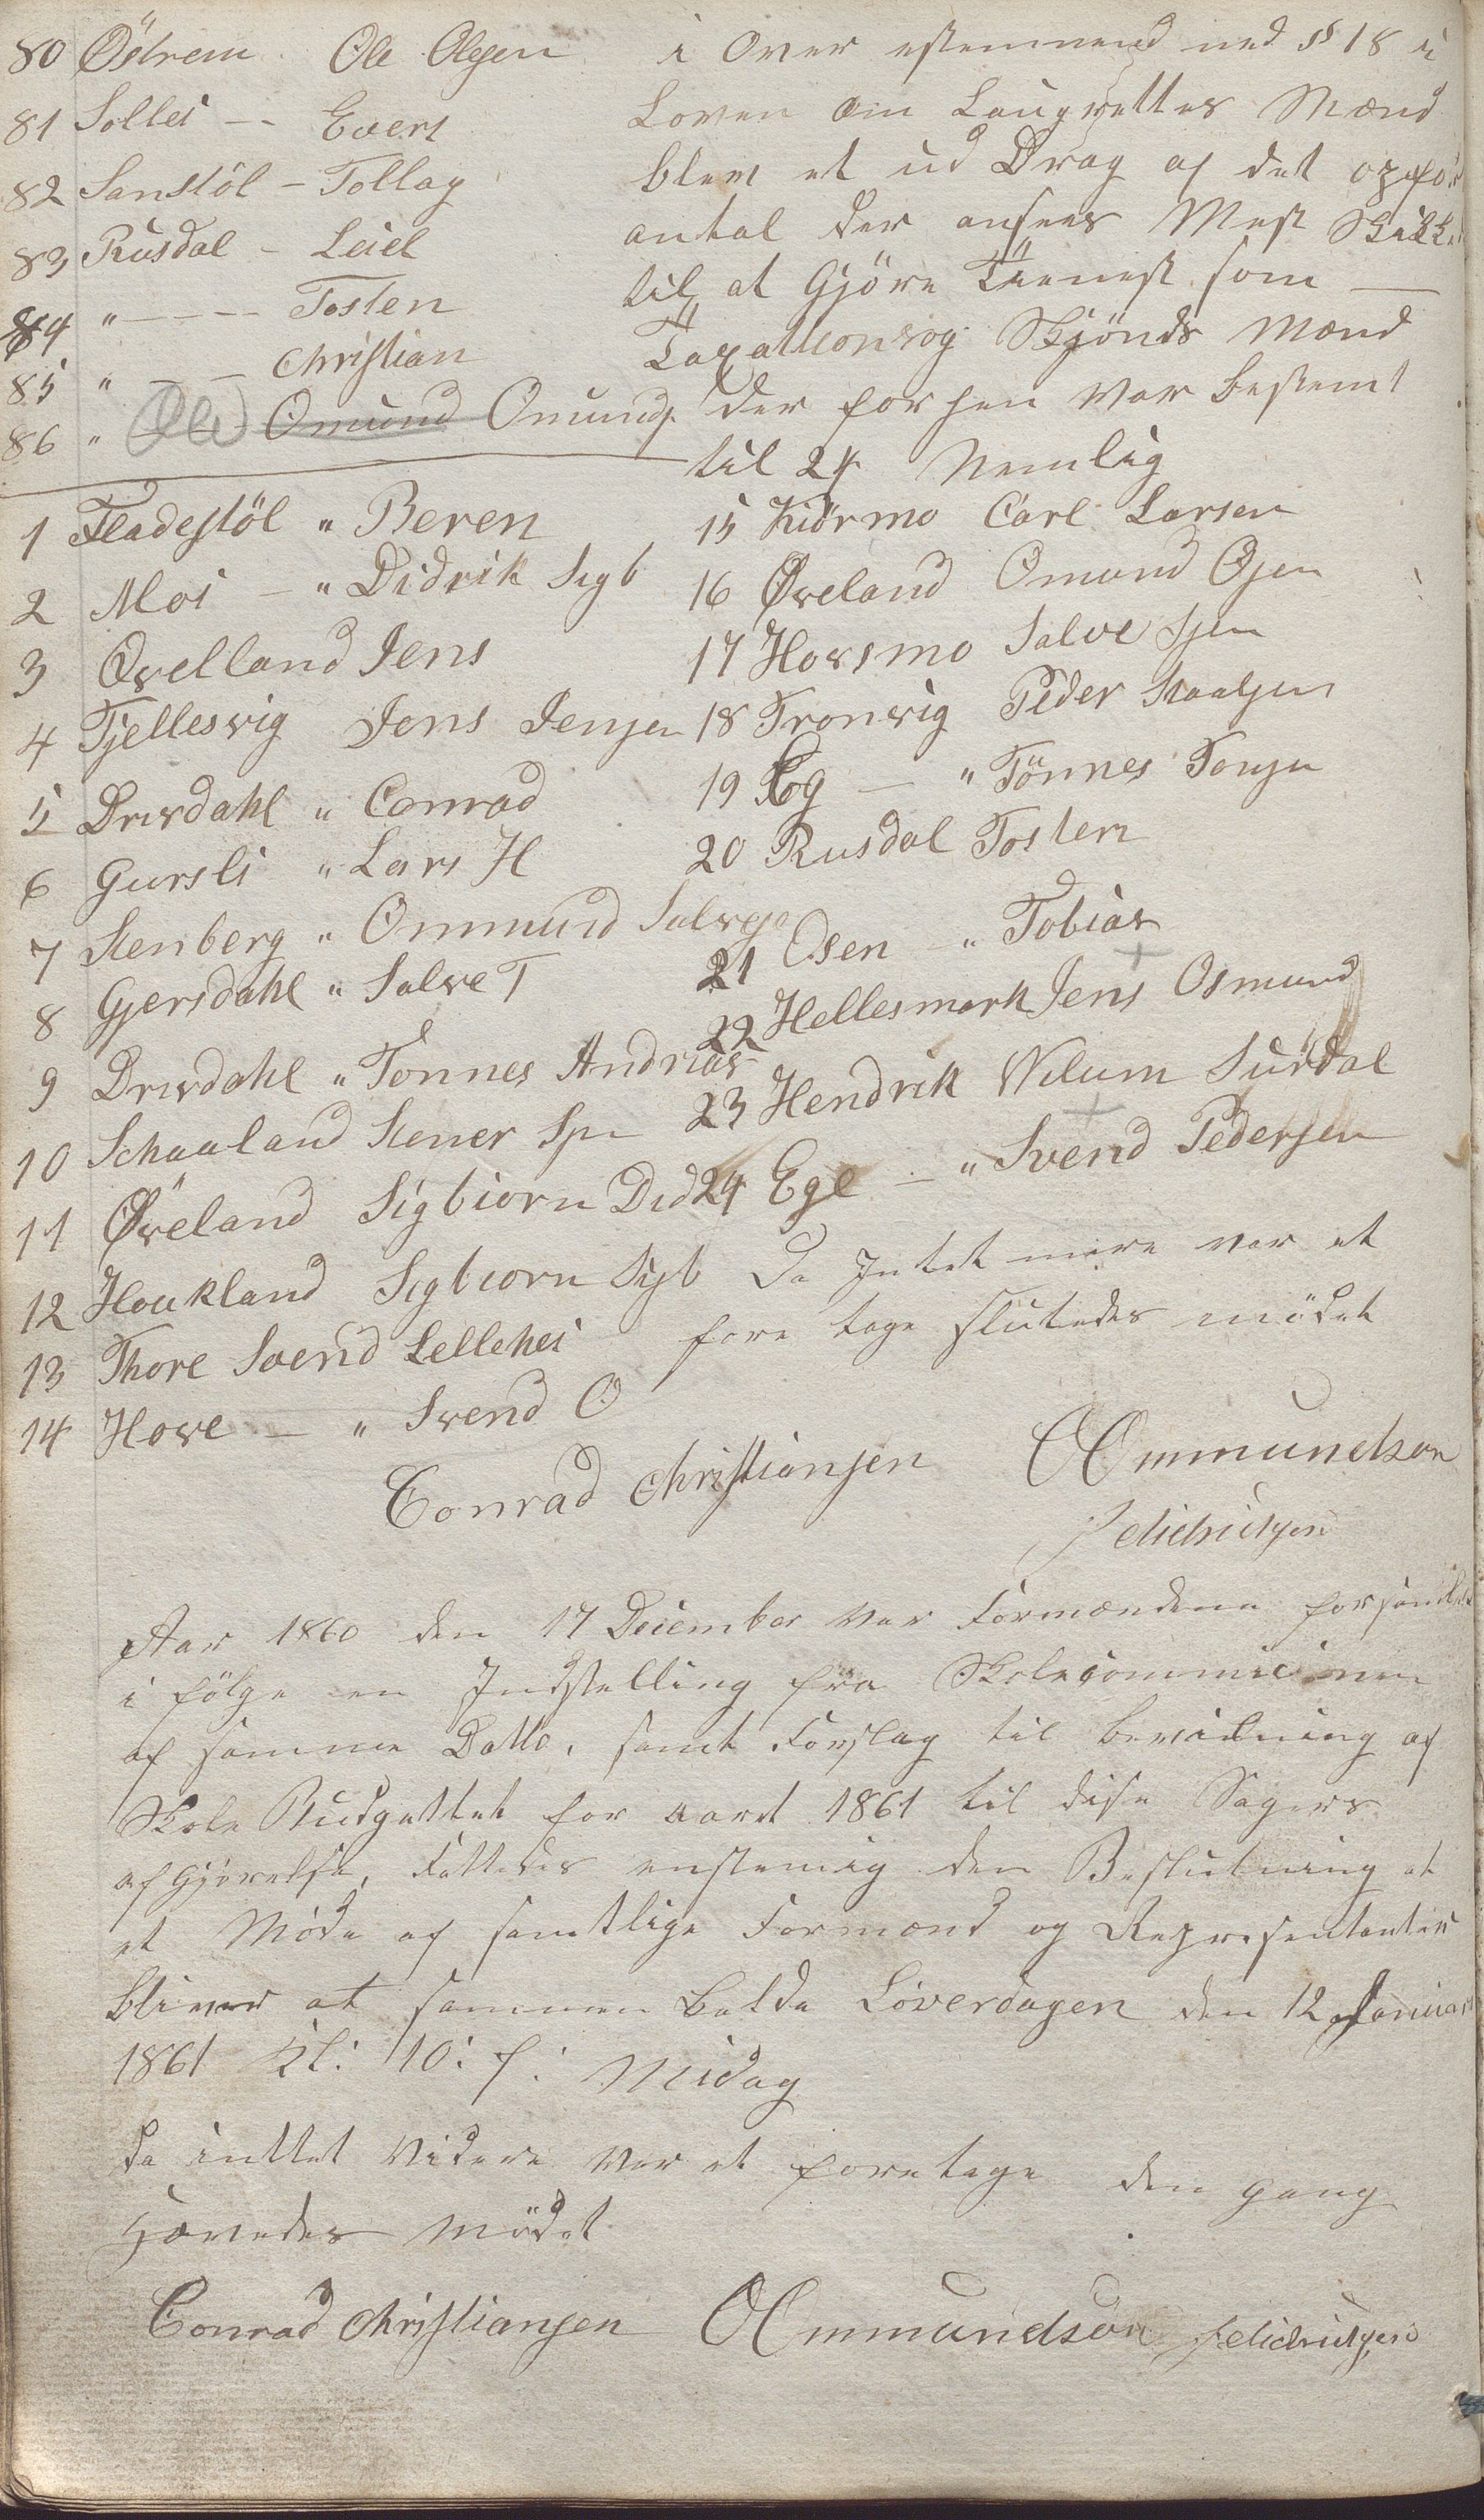 80 Östrem Ole Olsen
81 Sollei -- Evert
82 Sanstöl - Tollag
83 Rusdal - Leiel
84 " ---- Tosten
85 " -- Christian
86 " Ole Omund Omunds.
i Over estemmend med § 18 i
Loven om Laugrettes Mænd
blev et ud Drag af det opför
antal der ansees Mest Skikk
til at Gjöre Tienest som —
Taxations og Skjönds Mænd
der for hen var bestemt
til 24 Nemlig
1 Fladestöl " Beren
2 Moi - " Didrik Sigb
3 Øvelland Jens
4 Fjellesvig Jens Jensen
5 Drivdahl " Conrad
6 Gursli " Lars H
7 Stenberg " Ommund Salvesen
8 Gjersdahl " Salve T
9 Drivdahl " Tonnes Andrias
10 Schaaland Stener Spn
11 Øveland Sigbiorn Did
12 Houkland Sigbiorn Sigb
13 Thore Svend Lellehei
14 Hove - " Svend O
15 Kiörmo Carl Larsen
16 Øveland Omund Osen
17 Hovsmo Salve Sjen
18 Tronvig Peder Staalsen
19 Eg - " Tönnes Tonsen
20 Rusdal Tosten
21 Osen - " Tobias
22 Hellesmark Jens Osmund
23 Hendrik Wilum Surdal
24 Ege - " Svend Pedersen
Da Intet mere var at
fore tage sluttedes mödet
Conrad Christiansen OOmmundson
J Didriksen
Aar 1860 den 17 December var Formændene forsamlet
i fölge en Indstelling fra Skolecommicionen
af samme Datto, samt Forslag til bevilning af
Skole Budgettet for aaret 1861 til disse Sagers
afgjörelse, Fattedes enstemig den Beslutning at
et Möde af samtlige Formænd og Representanter
bliver at sammen kalde Löverdagen den 12 Januar
1861 Kl: 10: f: Midag
da inttet videre var at foretage den gang
Hævedes mödet
Conrad Christiansen OOmmundson J Didriksen